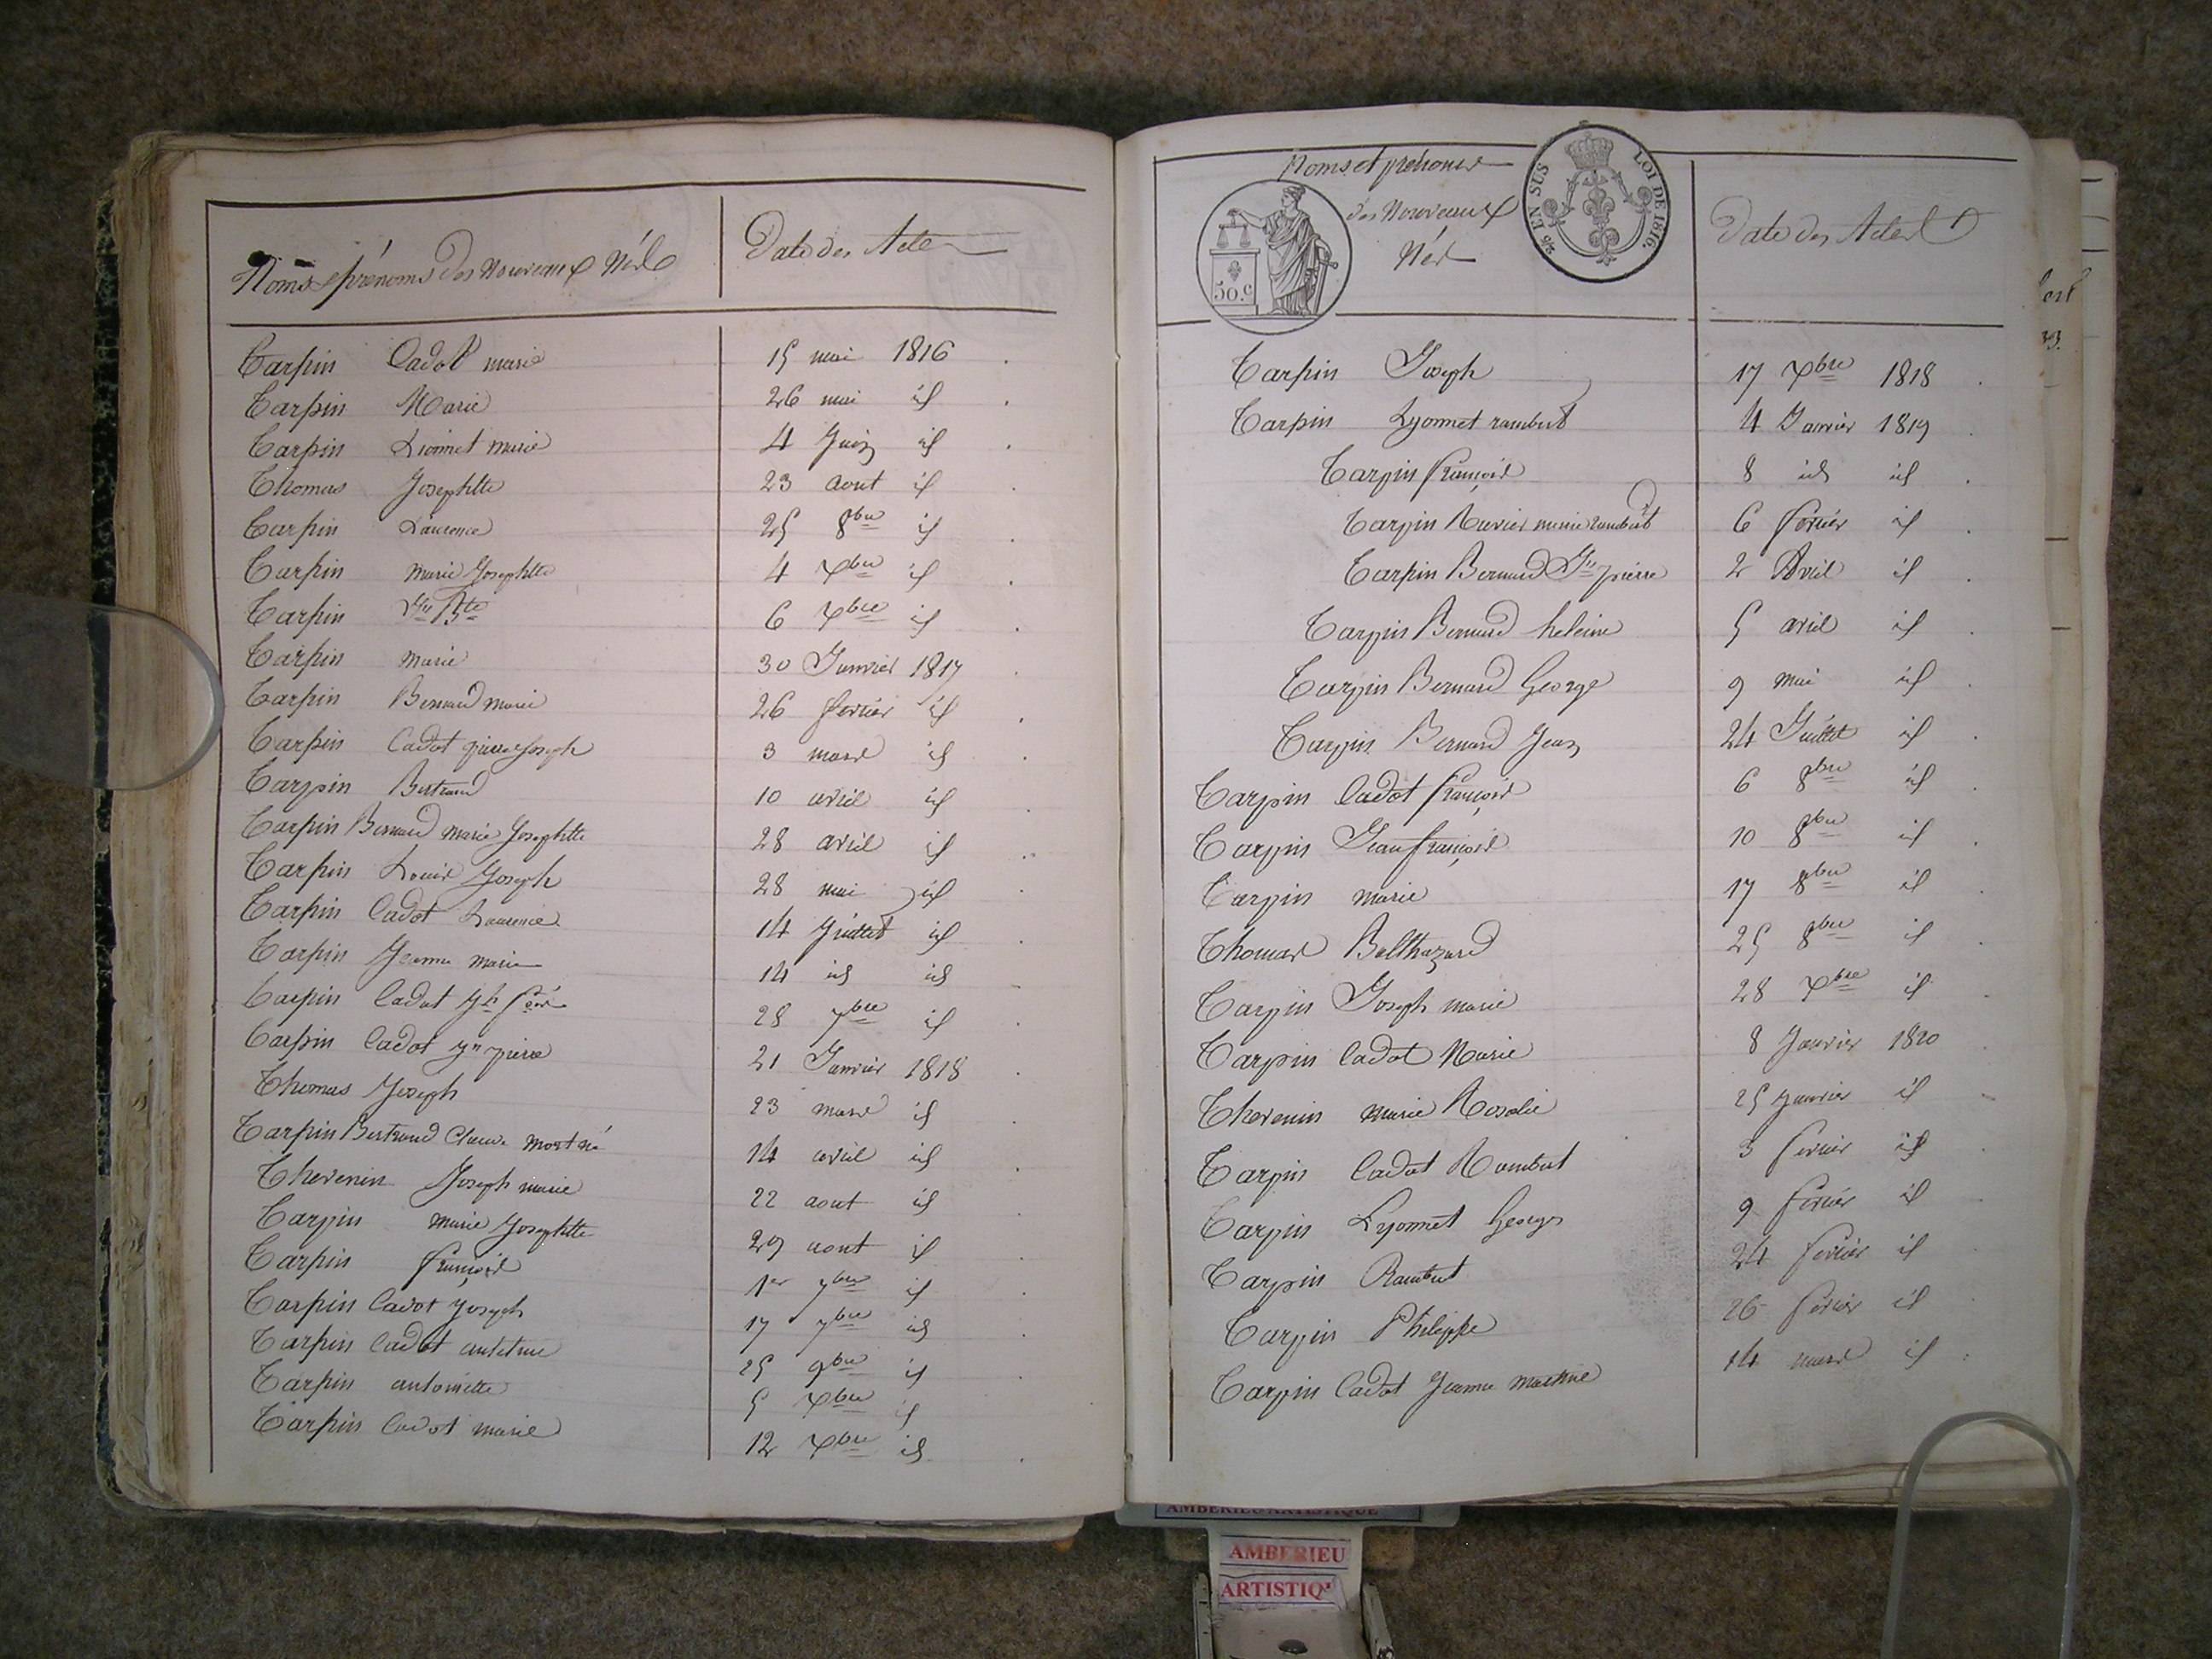 Noms et prénoms des Nouveaux Nés
Date des Actes
Tarpin Cadot marie 15 mai 1816
Tarpin Marie 26 mai id
Tarpin Lionnet marie 4 Juin id
Thomas Josephtte 23 aout id
Tarpin Laurence 25 8bre id
Tarpin marie Josephtte 4 Xbre id
Tarpin Jn Bte 6 Xbre id
Tarpin marie 30 Janvier 1817
Tarpin Bernard marie 26 fevrier id
Tarpin Cadot pierre Joseph 3 mars id
Tarpin Bertrand 10 avril id
Tarpin Bernard marie Josephtte 28 avril id
Tarpin Louis Joseph 28 mai id
Tarpin Cadot Laurence 14 Juillet id
Tarpin Jeanne marie 14 id id
Tarpin Cadot Jh 25 7bre id
Tarpin Cadot Jn pierre 21 Janvier 1818
Thomas Joseph 23 mars id
Tarpin Bertrand Claude mort né 14 avril id
Thevenin Joseph marie 22 aout id
Tarpin marie Josephtte 29 aout id
Tarpin françois 1er 7bre id
Tarpin Cadot Joseph 17 7bre id
Tarpin Cadot 25 9bre id
Tarpin antoinette 5 Xbre id
Tarpin Cadot marie 12 Xbre id
Noms et prénoms
des Nouveaux
Nés
Date des Actes
50.c
EN SUS
LOI DE 1816
Tarpin Joseph 17 Xbre 1818
Tarpin Lyonnet rambert 4 Janvier 1819
Tarpin françois 8 id id
Tarpin Ruvier marie rambert 6 fevrier id
Tarpin Bernard Jn pierre 2 Avril id
Tarpin Bernard heleine 5 avril id
Tarpin Bernard George 9 mai id
Tarpin Bernard Jean 24 Juillet id
Tarpin Cadot françois 6 8bre id
Tarpin Jean françois 10 8bre id
Tarpin marie 17 8bre id
Thomas Balthazard 25 8bre id
Tarpin Joseph marie 28 Xbre id
Tarpin Cadot Marie 8 Janvier 1820
Thevenin marie Rosalie 25 Janvier id
Tarpin Cadot Rambert 3 fevrier id
Tarpin Lyonnet Georges 9 fevrier id
Tarpin Rambert 24 fevrier id
Tarpin Philippe 26 fevrier id
Tarpin Cadot Jeanne 14 mars id
AMBERIEU ARTISTIQUE
AMBERIEU
ARTISTIQ